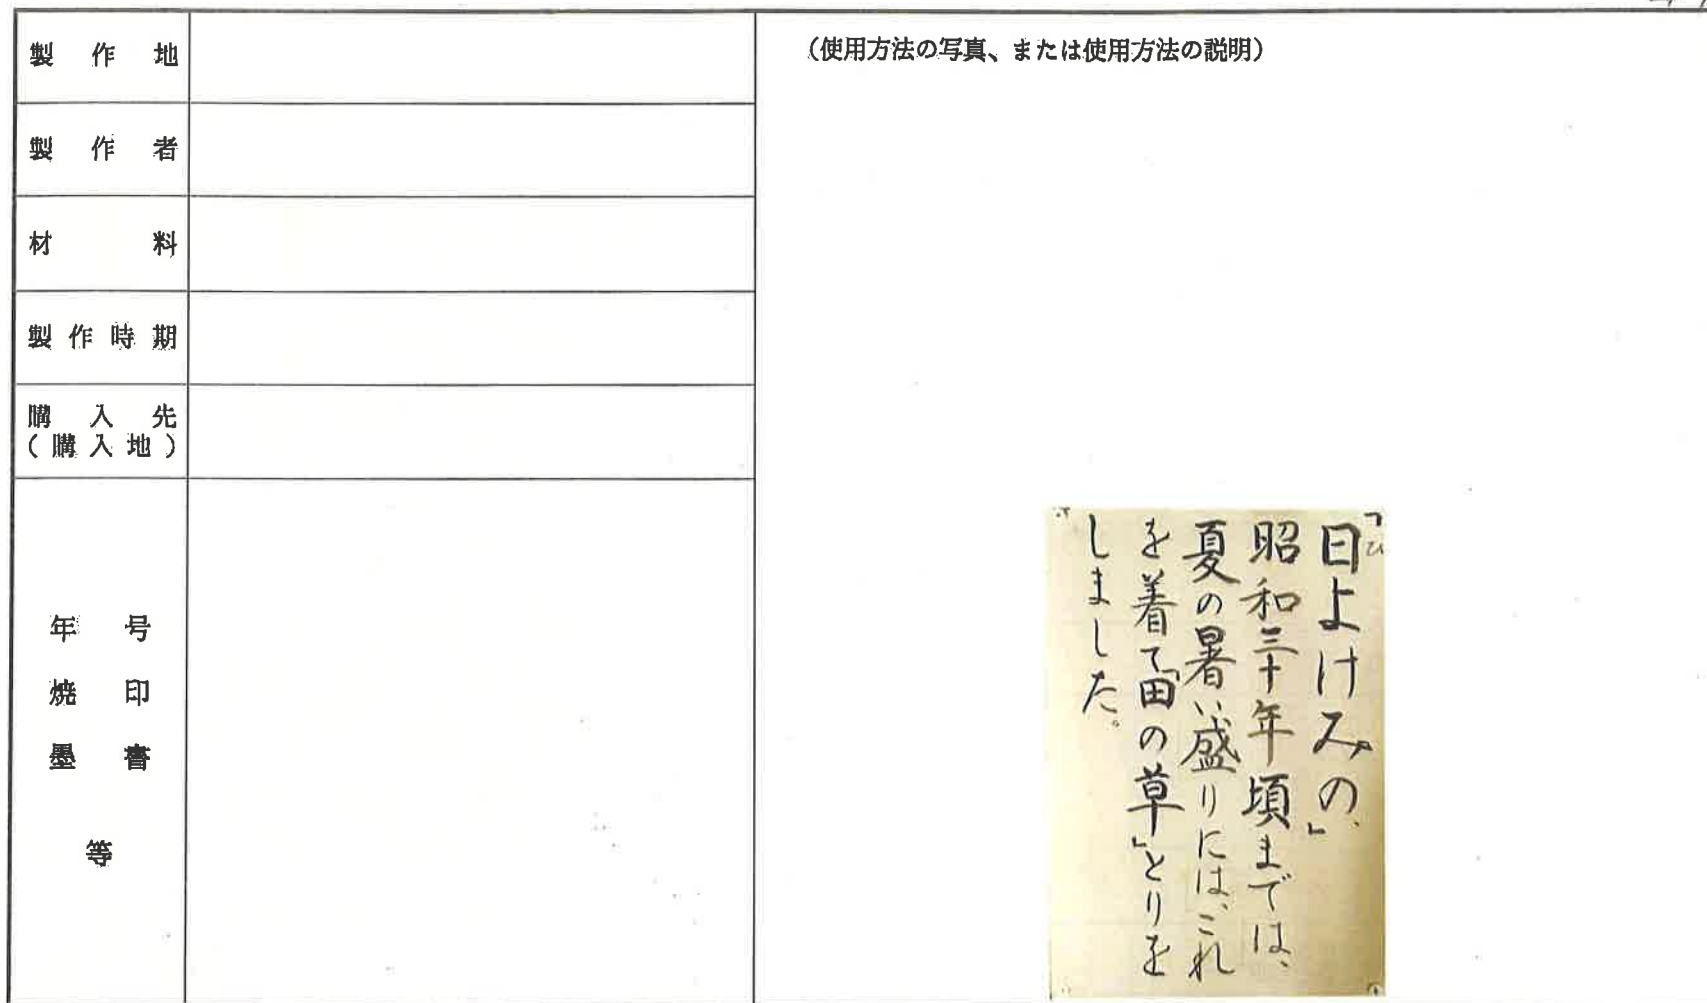 製作地
製作者
材料
製作時期
購入先
(購入地)
年号
焼印
墨書
等
(使用方法の写真、または使用方法の説明)
「日よけみの」
ひ
昭和三十年頃までは、
夏の暑い盛りには、これ
を着て「田の草」とりを
しました。